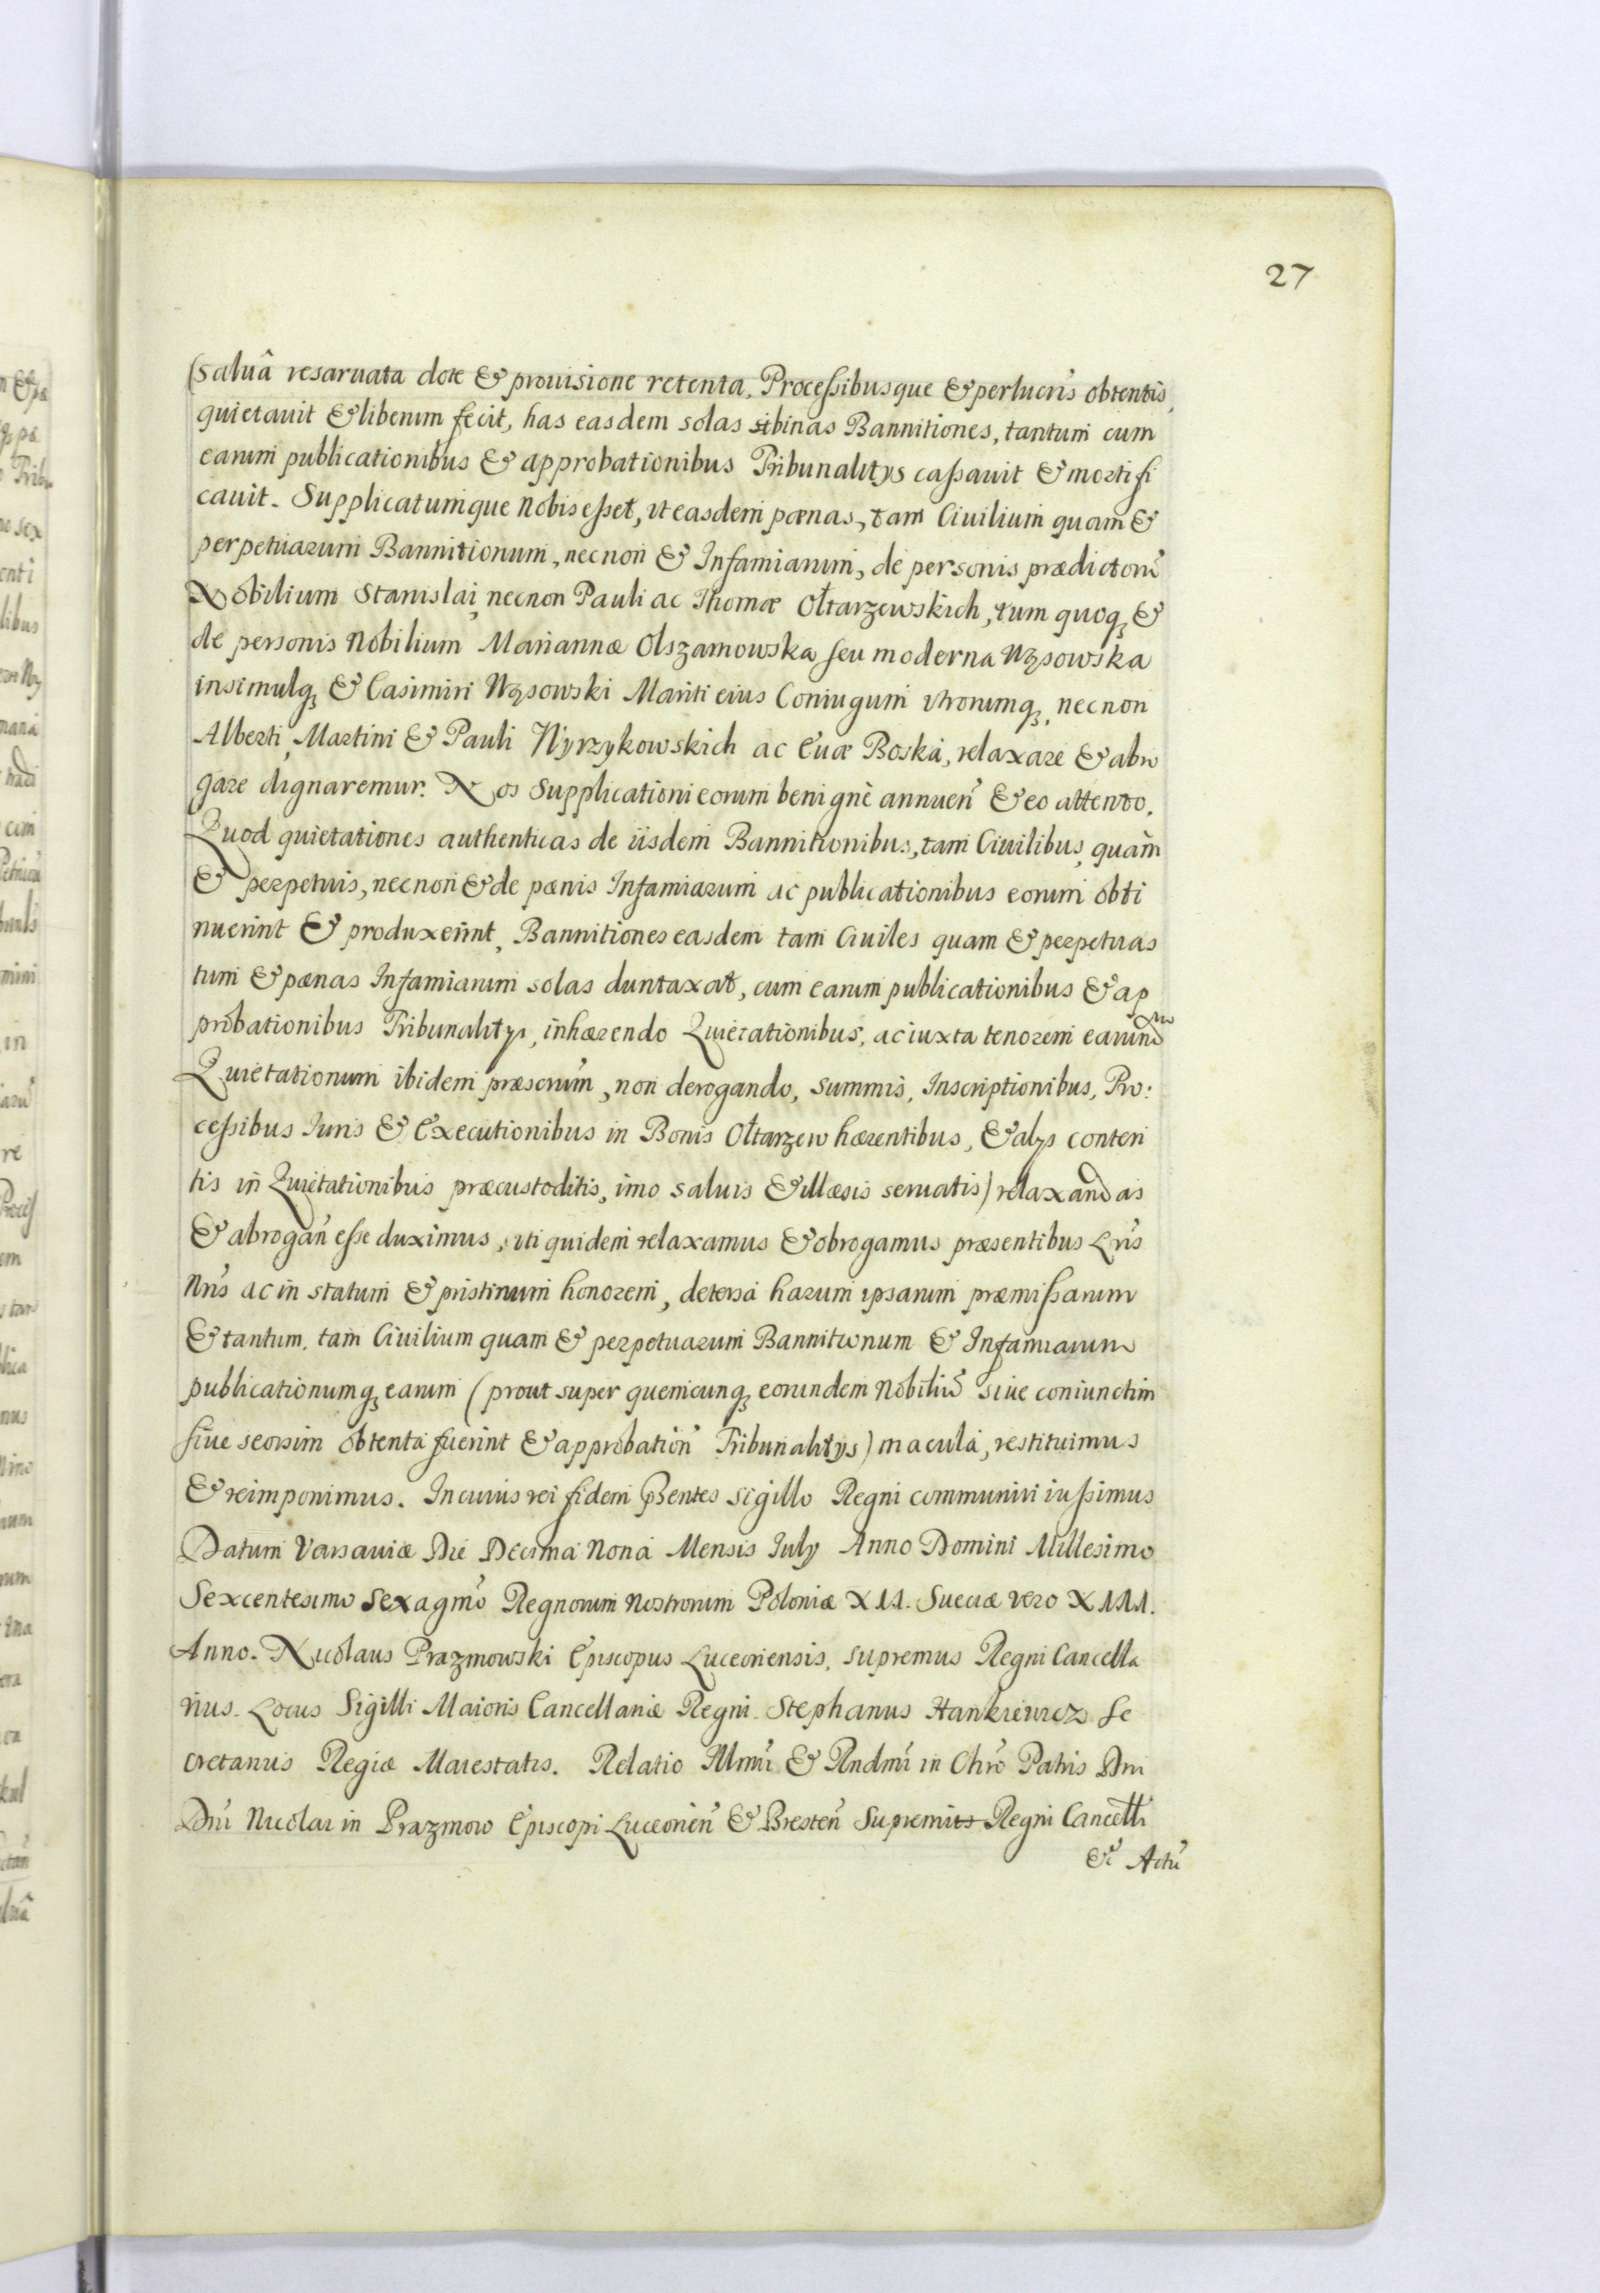 27
(Saluâ resaruata dote & prouisione retenta, Processibusque & perlucris obtentis,
quietauit & liberum fecit, has easdem solas binas Bannitiones, tantum cum
earum publicationibus & approbationibus Tribunalitys cassauit & mortifi
cauit. Supplicatumque Nobis esset, vt easdem pænas, tam Ciuilium quam &
perpetuarum Bannitionum, necnon & Infamiarum, de personis prædictorũ
Nobilium Stanislai, necnon Pauli ac Thomæ Ołtarzewskich, tum quoqȝ &
de personis Nobilium Mariannæ Olszamowska seu moderna Wȥsowska
insimulqȝ & Casimiri Wȥsowski Mariti eius Coniugum vtrorumqȝ, necnon
Alberti, Martini & Pauli Wyrzykowskich ac Euæ Boska, relaxare & abro
gare dignaremur. Nos Supplicationi eorum benignè annueñ & eo attento.
Quod quietationes authenticas de iisdem Bannitionibus, tam Ciuilibus, quàm
& perpetuis, necnon & de pænis Infamiarum ac publicationibus eorum obti
nuerint & produxerint, Bannitiones easdem tam Ciuiles quam & perpetuas
tum & pænas Infamiarum solas duntaxat, cum earum publicationibus & ap
probationibus Tribunalitys, inhærendo Quietationibus, ac iuxta tenorem earund
Quietationum ibidem præscrim, non derogando, summis, Inscriptionibus, Pro:
cessibus Iuris & Executionibus in Bonis Ołtarzew hærentibus, & alys conten
tis in Quietationibus præcustoditis, imo saluis & illæsis seruatis) relaxandas
& abrogañ esse duximus, vti quidem relaxamus & obrogamus præsentibus Lris
Nris ac in statum & pristinum honorem, detersa harum ipsarum præmissarum
& tantum, tam Ciuilium quam & perpetuarum Bannitionum & Infamiarum
publicationumqȝ earum (prout super quemcunqȝ eorundem Nobiliũ siue coniunctim
siue seorsim obtenta fuerint & approbatioñ Tribunalitys) maculá, restituimus
& reimponimus. In cuius rei fidem Pñtes Sigillo Regni communiri iussimus
Datum Varsauiæ Die Decima Noná Mensis July Anno Domini Millesimo
Sexcentesimo Sexagmo Regnorum Nostrorum Poloniæ XII. Sueciæ vero XIII.
Anno. Nicolaus Prazmowski Episcopus Luceoriensis, supremus Regni Cancella
rius. Locus Sigilli Maioris Cancellariæ Regni. Stephanus Hankiewicz Se
cretarius Regiæ Maiestatis. Relatio Illmi & Rndmi in Chro Patris Dni
Dni Nicolai in Prazmow Episcopi Luceorieñ & Bresteñ Supremi Regni Cancelli
&c Actũ